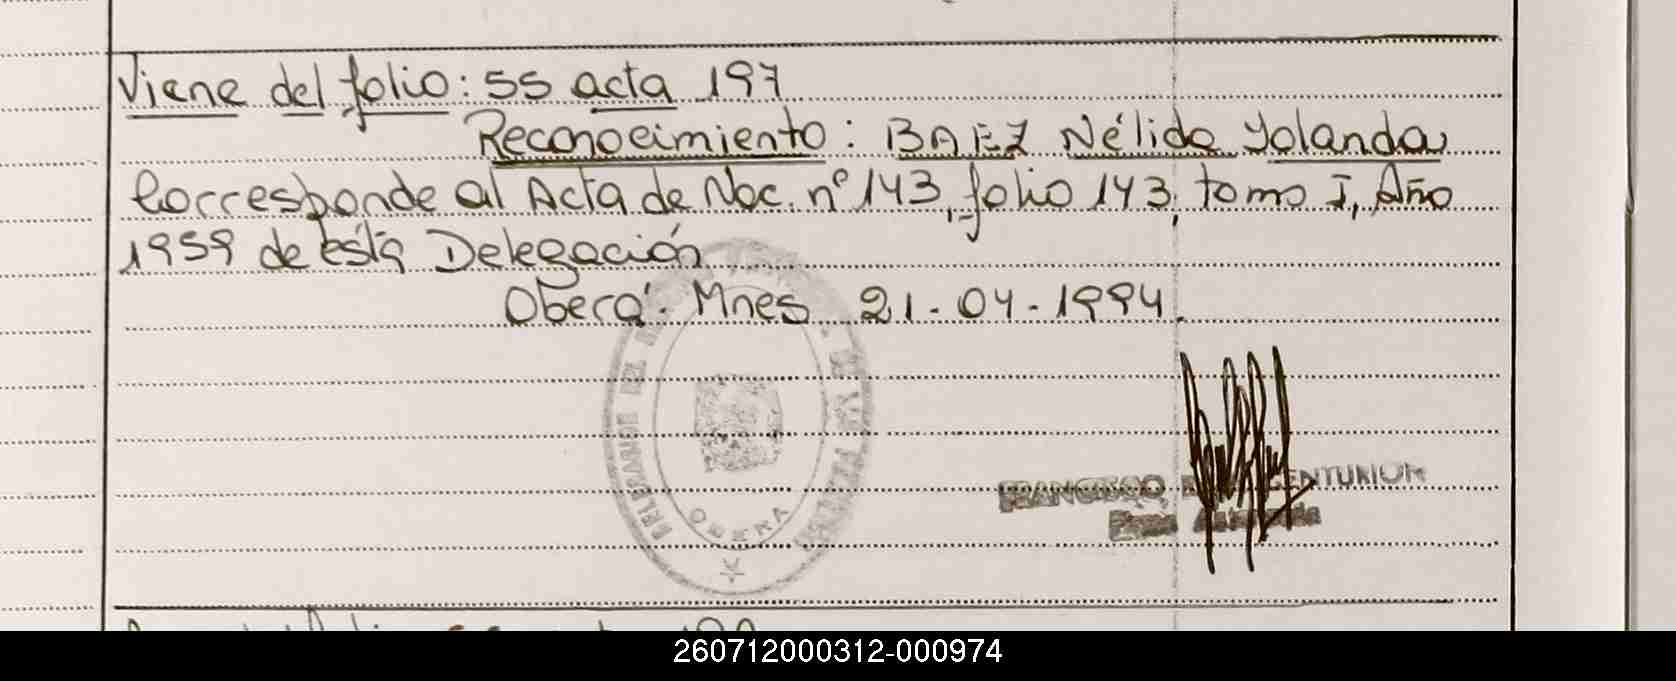 Viene del folio: 55 acta 197
Reconocimiento: BAEZ Nélida Yolanda
Corresponde al Acta de Nac. nº 143, folio 143, tomo I, Año
1959 de ésta Delegación
Oberá. Mnes 21-04-1994.
DEL
OBERA
FRANCISCO CENTURION
Firma Autorizada
260712000312-000974